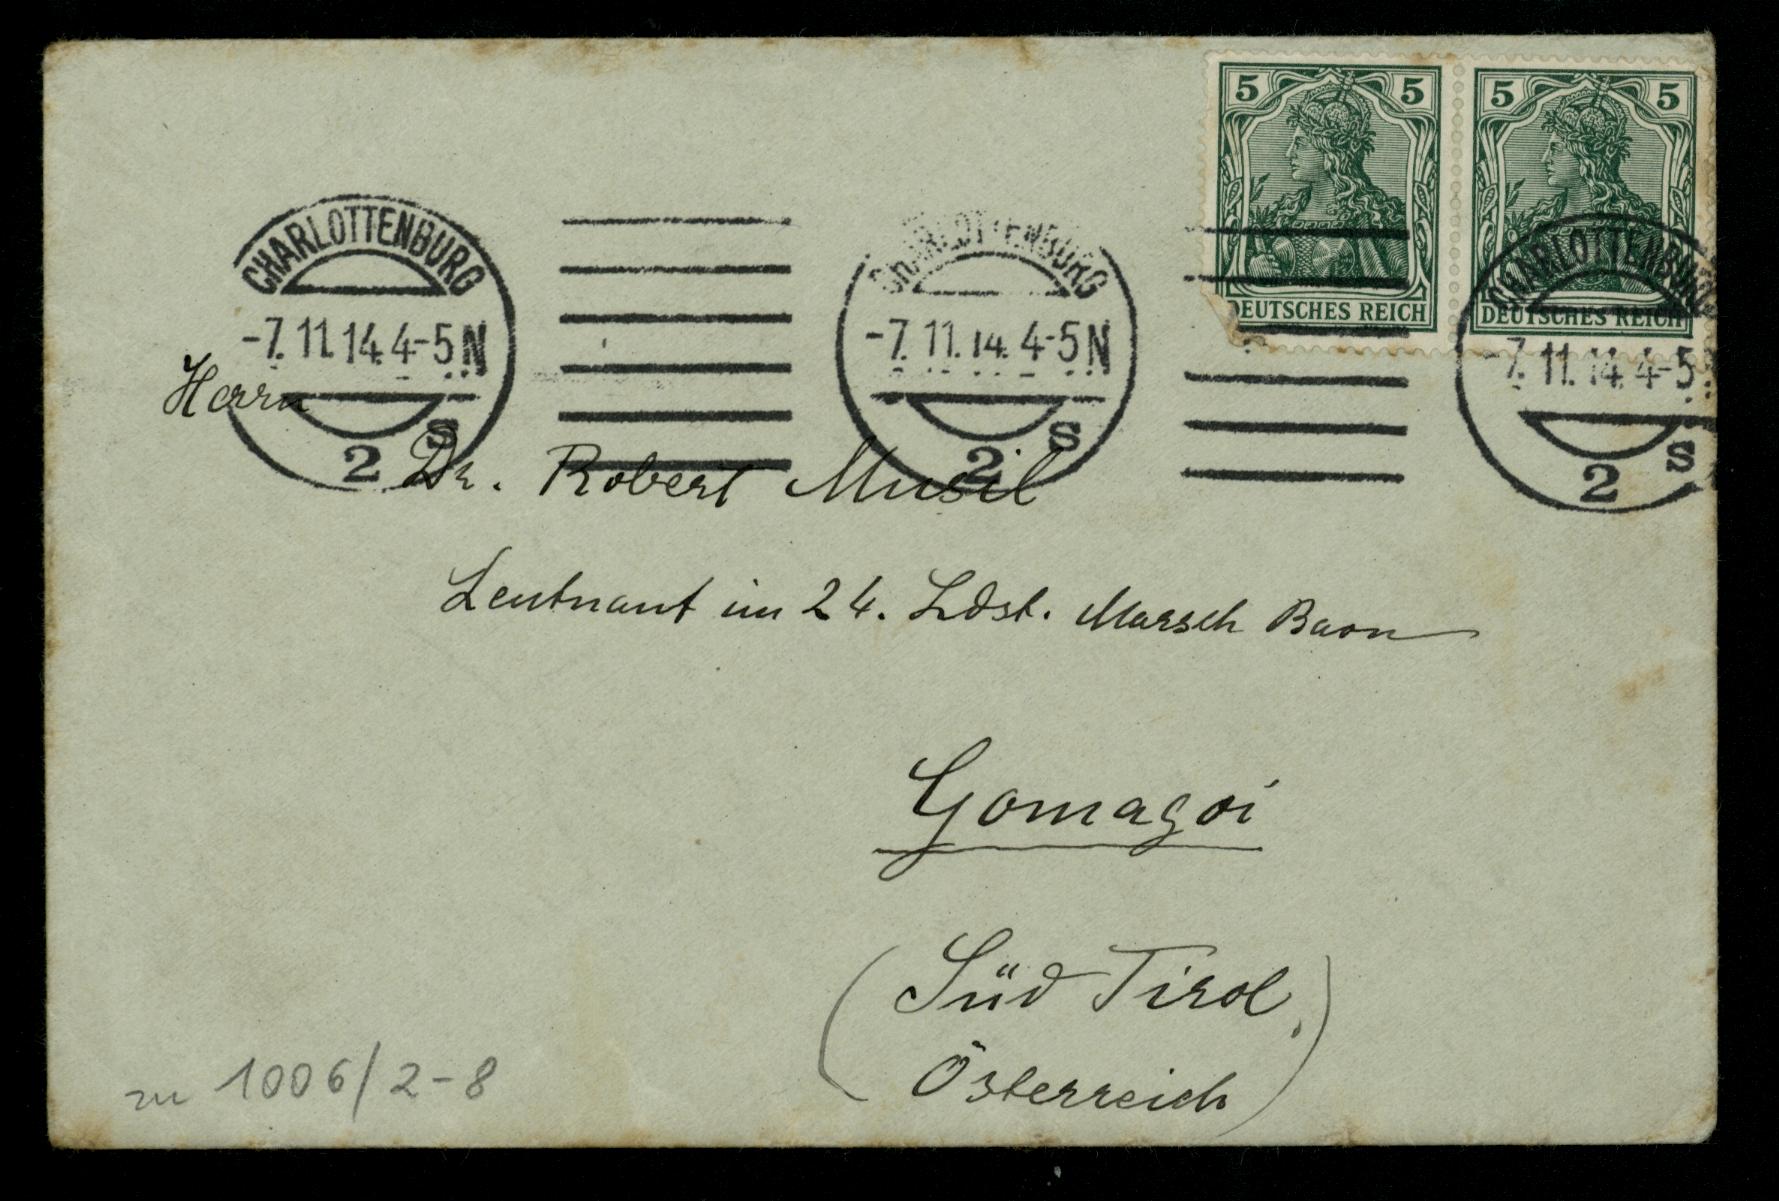 5 5 5 5
DEUTSCHES REICH DEUTSCHES REICH
CHARLOTTENBURG CHARLOTTENBURG CHARLOTTENBURG
-7.11.14.4-5N -7.11.14.4-5N -7.11.14.4-5
2 S 2 S 2 S
Herrn
Dr. Robert Musil
Leutnant im 24. Ldst. Marsch Baon
Gomagoi
(Süd Tirol,
Österreich)
zu 1006/2-8